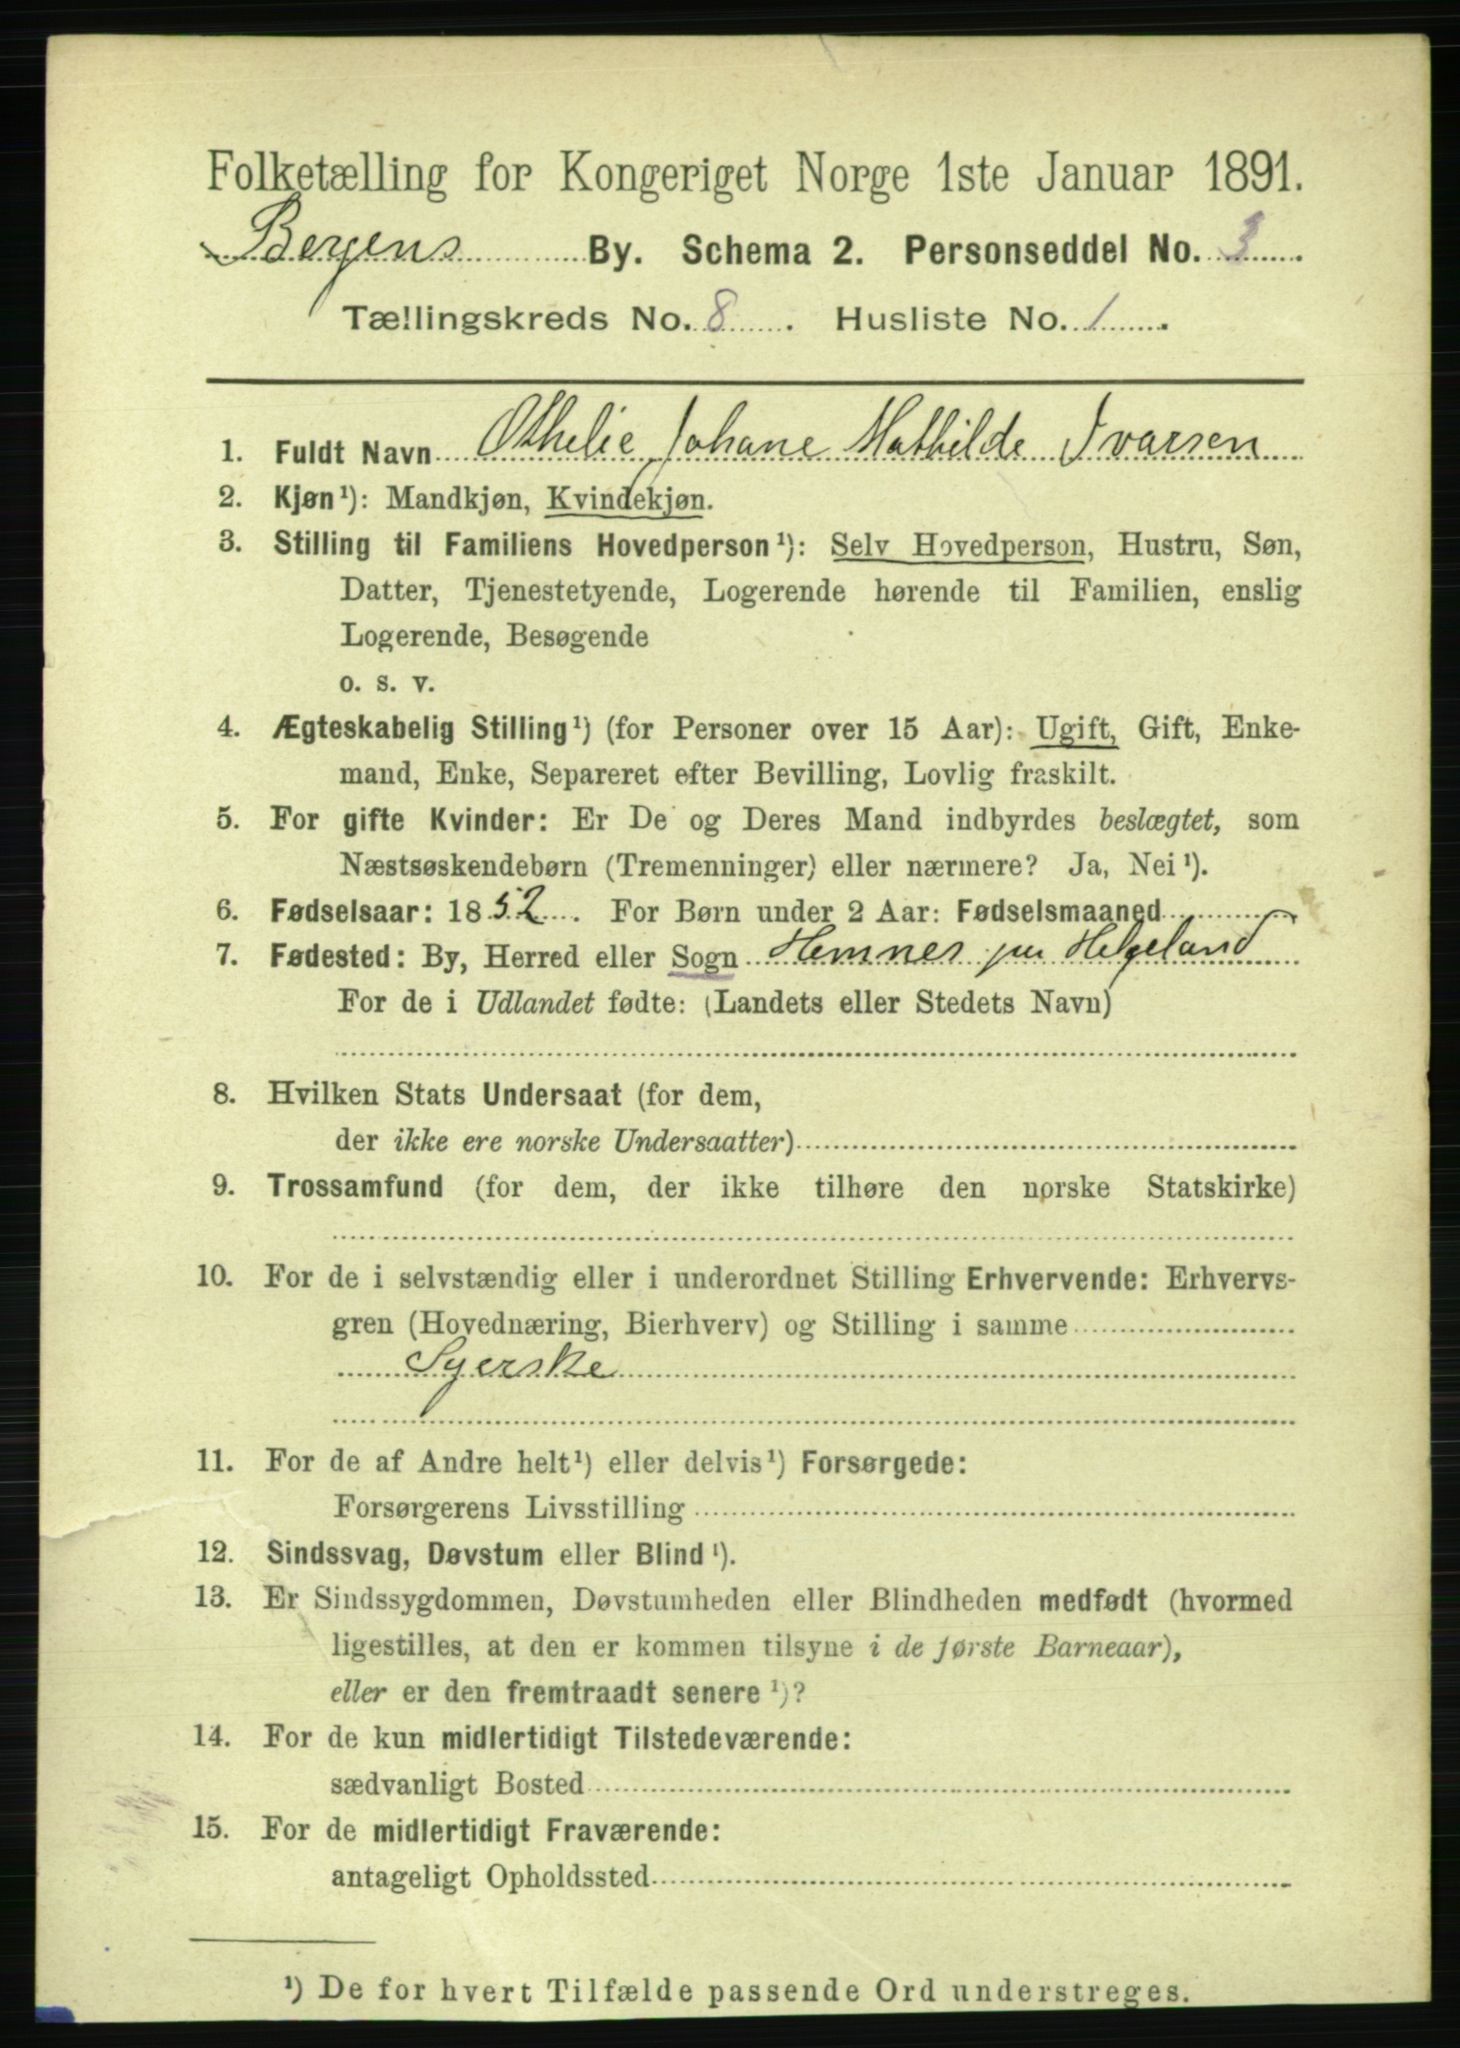 Folketælling for Kongeriget Norge 1ste Januar 1891.
Bergens By. Schema 2. Personseddel No. 3.
Tællingskreds No. 8. Husliste No. 1.
1. Fuldt Navn Othelie Johane Mathilde Ivarsen
2. Kjøn¹): Mandkjøn, Kvindekjøn.
3. Stilling til Familiens Hovedperson¹): Selv Hovedperson, Hustru, Søn,
Datter, Tjenestetyende, Logerende hørende til Familien, enslig
Logerende, Besøgende
o. s. v.
4. Ægteskabelig Stilling¹) (for Personer over 15 Aar): Ugift, Gift, Enke-
mand, Enke, Separeret efter Bevilling, Lovlig fraskilt.
5. For gifte Kvinder: Er De og Deres Mand indbyrdes beslægtet, som
Næstsøskendebørn (Tremenninger) eller nærmere? Ja, Nei¹).
6. Fødselsaar: 1852. For Børn under 2 Aar: Fødselsmaaned
7. Fødested: By, Herred eller Sogn Hemnes paa Helgeland
For de i Udlandet fødte: (Landets eller Stedets Navn)
8. Hvilken Stats Undersaat (for dem,
der ikke ere norske Undersaatter)
9. Trossamfund (for dem, der ikke tilhøre den norske Statskirke)
10. For de i selvstændig eller i underordnet Stilling Erhvervende: Erhvervs-
gren (Hovednæring, Bierhverv) og Stilling i samme
Syerske
11. For de af Andre helt¹) eller delvis¹) Forsørgede:
Forsørgerens Livsstilling
12. Sindssvag, Døvstum eller Blind¹).
13. Er Sindssygdommen, Døvstumheden eller Blindheden medfødt (hvormed
ligestilles, at den er kommen tilsyne i de første Barneaar),
eller er den fremtraadt senere¹)?
14. For de kun midlertidigt Tilstedeværende:
sædvanligt Bosted
15. For de midlertidigt Fraværende:
antageligt Opholdssted
¹) De for hvert Tilfælde passende Ord understreges.